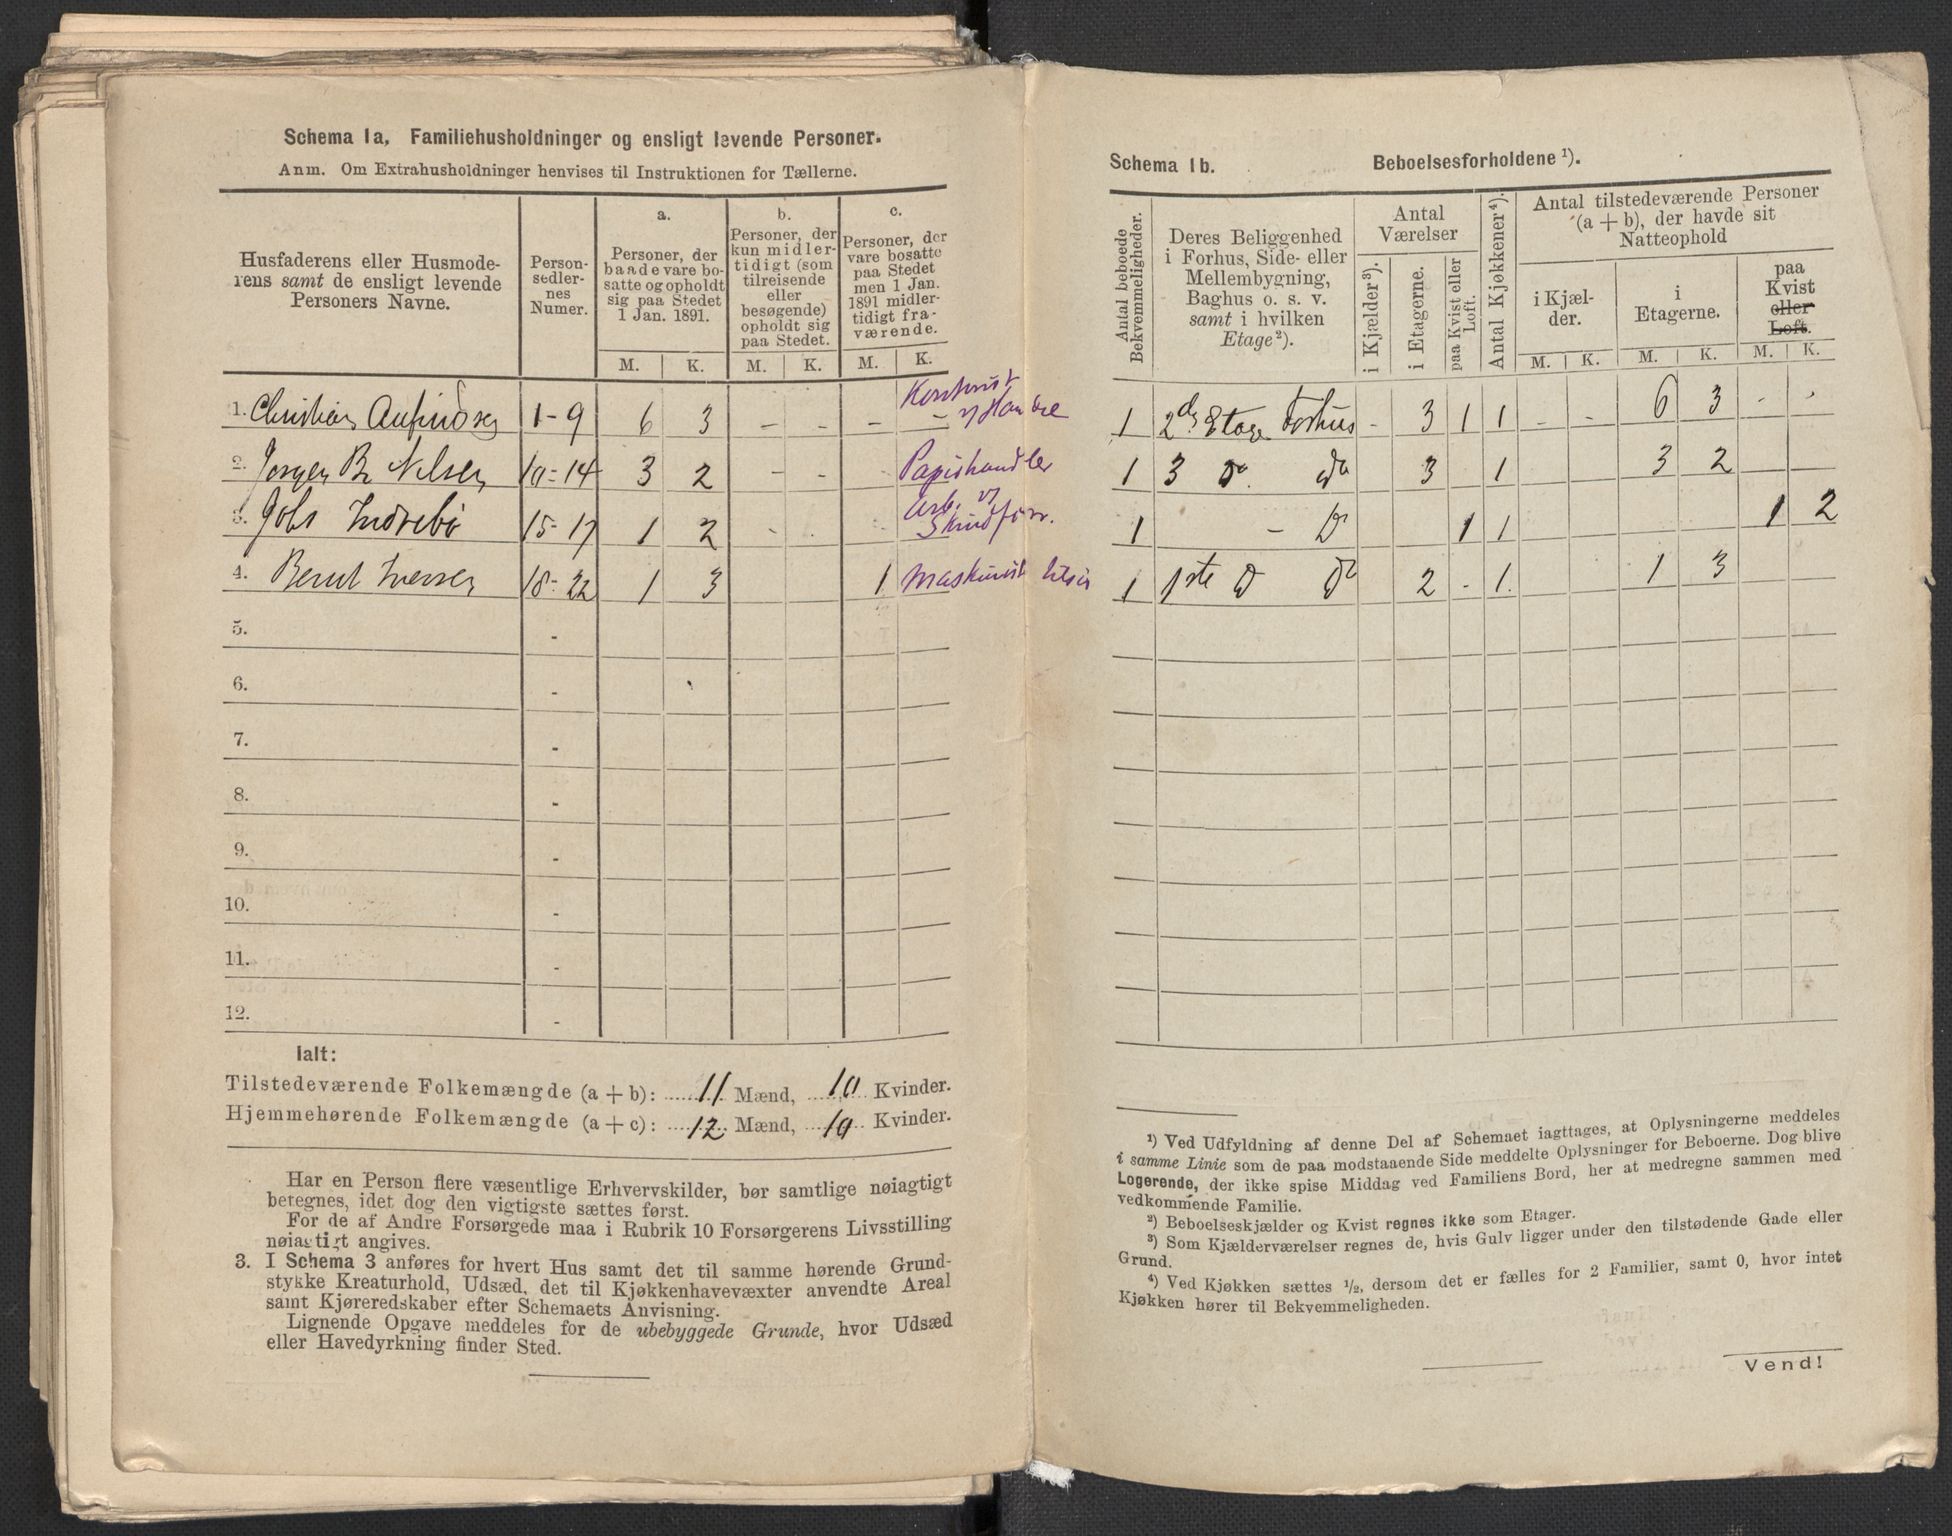 Schema 1a, Familiehusholdninger og ensligt levende Personer.
Anm. Om Extrahusholdninger henvises til Instruktionen for Tællerne.
Husfaderens eller Husmode-
rens samt de ensligt levende
Personers Navne.
Person-
sedler-
nes
Numer.
a.
Personer, der
baade vare bo-
satte og opholdt
sig paa Stedet
1 Jan. 1891.
b.
Personer, der
kun midler-
tidigt (som
tilreisende
eller
besøgende)
opholdt sig
paa Stedet.
c.
Personer, der
vare bosatte
paa Stedet
men 1 Jan.
1891 midler-
tidigt fra-
værende.
M. K. M. K. M. K.
1. Christian 1-9 6 3 - - - -
2. Jørgen Br Nilsen 10-14 3 2 - - Papirhandler
3. Indrebø 15-17 1 2 - - Arb. v/ Skindforr.
4. Bernt Iversen 18-22 1 3 1 Maskinist
5. -
6. -
7. -
8. -
9. -
10. -
11. -
12. -
Ialt:
Tilstedeværende Folkemængde (a + b): 11 Mænd, 10 Kvinder.
Hjemmehørende Folkemængde (a + c): 12 Mænd, 10 Kvinder.
Har en Person flere væsentlige Erhvervskilder, bør samtlige nøiagtigt
betegnes, idet dog den vigtigste sættes først.
For de af Andre Forsørgede maa i Rubrik 10 Forsørgerens Livsstilling
nøiagtigt angives.
3. I Schema 3 anføres for hvert Hus samt det til samme hørende Grund-
stykke Kreaturhold, Udsæd, det til Kjøkkenhavevæxter anvendte Areal
samt Kjøreredskaber efter Schemaets Anvisning.
Lignende Opgave meddeles for de ubebyggede Grunde, hvor Udsæd
eller Havedyrkning finder Sted.
Schema 1b. Beboelsesforholdene ¹).
Antal beboede
Bekvemmeligheder.
Deres Beliggenhed
i Forhus, Side- eller
Mellembygning,
Baghus o. s. v.
samt i hvilken
Etage ²).
Antal
Værelser
i Kjælder ³).
i Etagerne.
paa Kvist eller
Loft.
Antal Kjøkkener ⁴).
Antal tilstedeværende Personer
(a + b), der havde sit
Natteophold
i Kjæl-
der.
i
Etagerne.
paa
Kvist
eller
Loft.
M. K. M. K. M. K.
1 2den Etage Forhus - 3 1 1 - - 6 3 - -
1 3 do. do 3 1 3 2
1 - do 1 1 1 2
1 1ste do do 2 - 1. 1 3
¹) Ved Udfyldning af denne Del af Schemaet iagttages, at Oplysningerne meddeles
i samme Linie som de paa modstaaende Side meddelte Oplysninger for Beboerne. Dog blive
Logerende, der ikke spise Middag ved Familiens Bord, her at medregne sammen med
vedkommende Familie.
²) Beboelseskjælder og Kvist regnes ikke som Etager.
³) Som Kjælderværelser regnes de, hvis Gulv ligger under den tilstødende Gade eller
Grund.
⁴) Ved Kjøkken sættes ½, dersom det er fælles for 2 Familier, samt 0, hvor intet
Kjøkken hører til Bekvemmeligheden.
Vend!